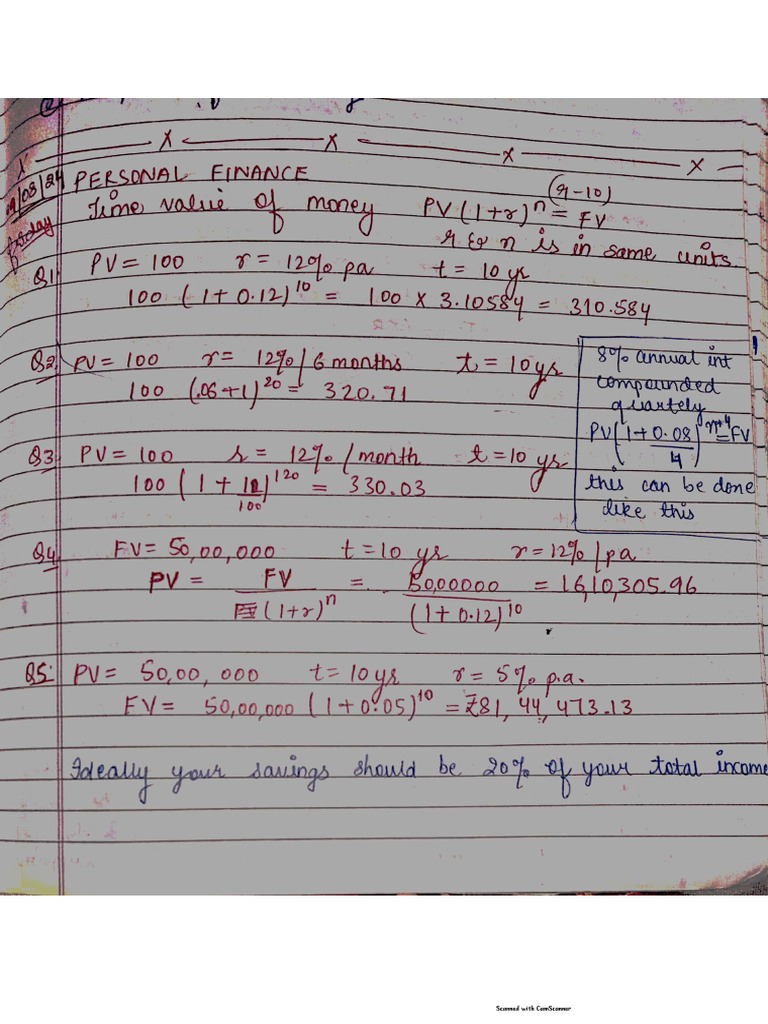 X X X X
PERSONAL FINANCE (r-10)
Time value of money PV(1+r)^n = FV
r & n is in same units.
Q1 PV = 100 r = 12% pa t = 10 yr
100 (1+0.12)^10 = 100 × 3.10584 = 310.584
Q2. PV = 100 r = 12% / 6 months t = 10 yrs
100 (.06+1)^20 = 320.71
8% annual int
compounded
quartely
PV(1+0.08/4)^n*4 = FV
this can be done
like this
Q3 PV = 100 r = 12% / month t = 10 yrs
100 (1 + 12/100)^120 = 330.03
Q4 FV = 50,00,000 t = 10 yrs r = 12% / pa
PV = FV/(1+r)^n = 5000000/(1+0.12)^10 = 16,10,305.96
Q5: PV = 50,00,000 t = 10 yrs r = 5% p.a.
FV = 50,00,000 (1+0.05)^10 = ₹81,44,473.13
Ideally your savings should be 20% of your total income
Scanned with CamScanner